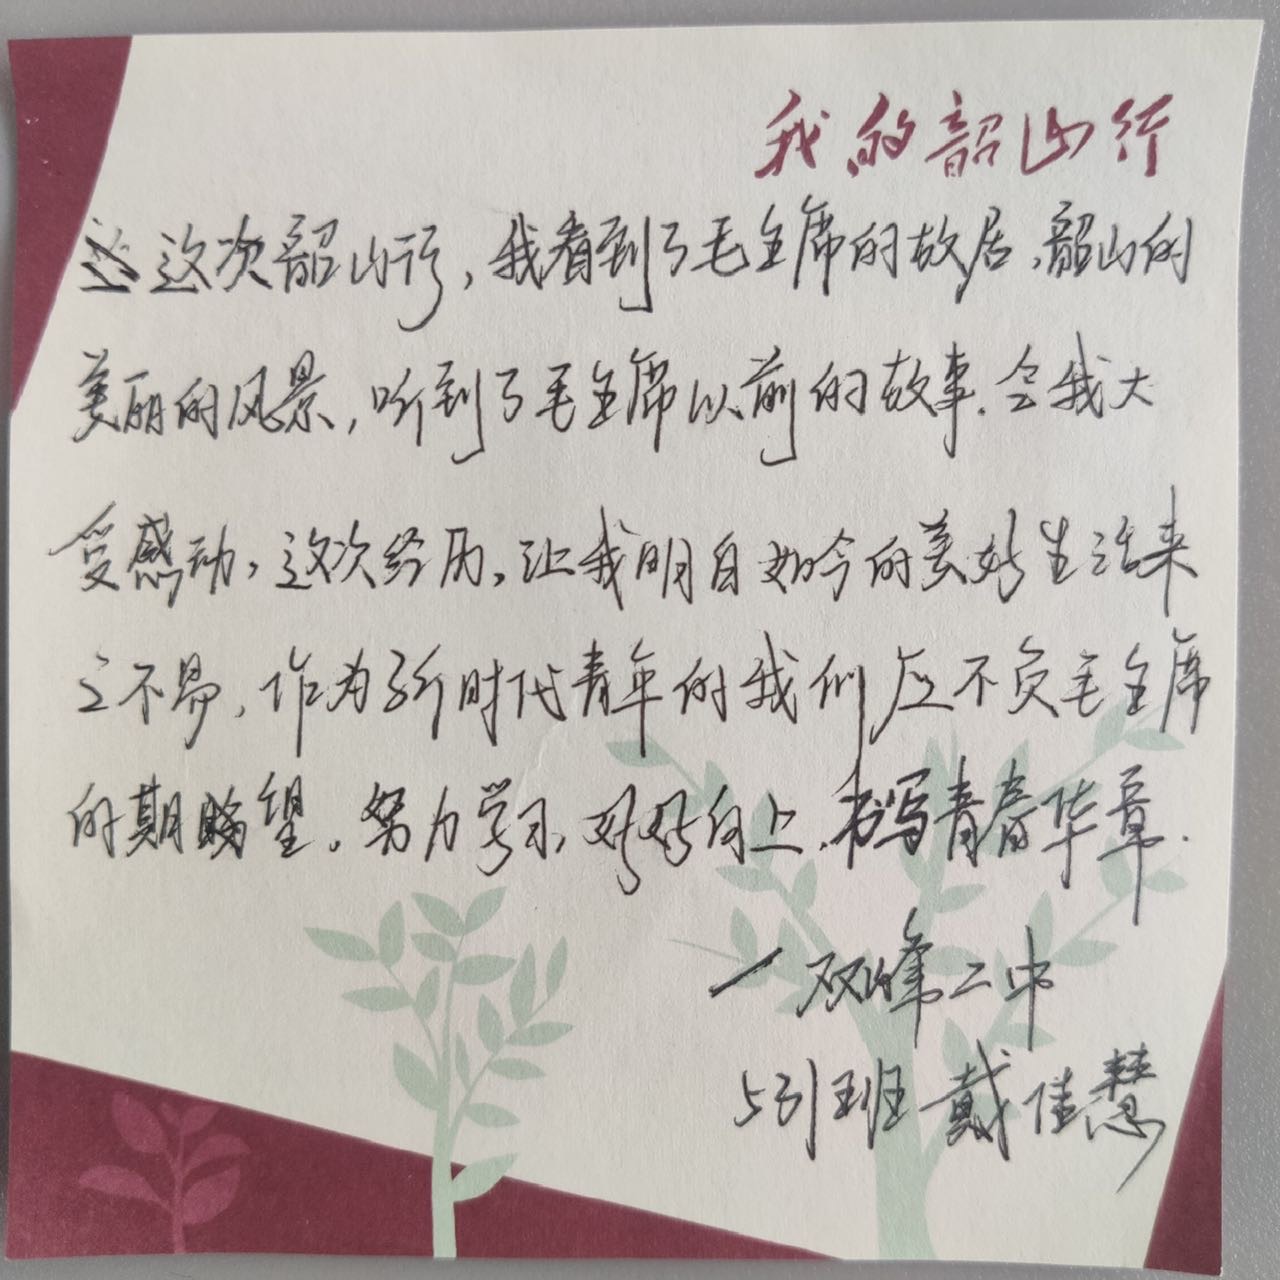 我的韶山行
这次韶山行，我看到了毛主席的故居、韶山的
美丽的风景，听到了毛主席以前的故事。令我大
受感动，这次经历，让我明白如今的美好生活来
之不易，作为新时代青年的我们应不负毛主席
的期望。努力学习、好好向上，书写青春华章.
—双峰二中
531班 戴佳慧